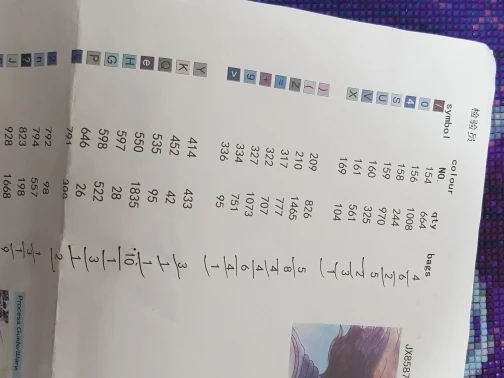 检验员
symbol colour NO. qty bags
7 154 664 4
0 156 1008 6
4 158 244 2
S 159 970 5
U 160 325 2
V 161 561 3
X 169 104 1
) 209 826 5
( 210 1465 8
Z 317 777 4
= 322 707 4
+ 327 1073 6
9 334 751 4
> 336 95 1
Y 414 433 3
K 452 42 1
Q 535 95 1
e 550 1835 10
H 597 28 1
G 598 522 3
P 646 26 1
791 2
792 98 1
n 794 557 3
? 823 198 1
J 928 1668 9
JX8587